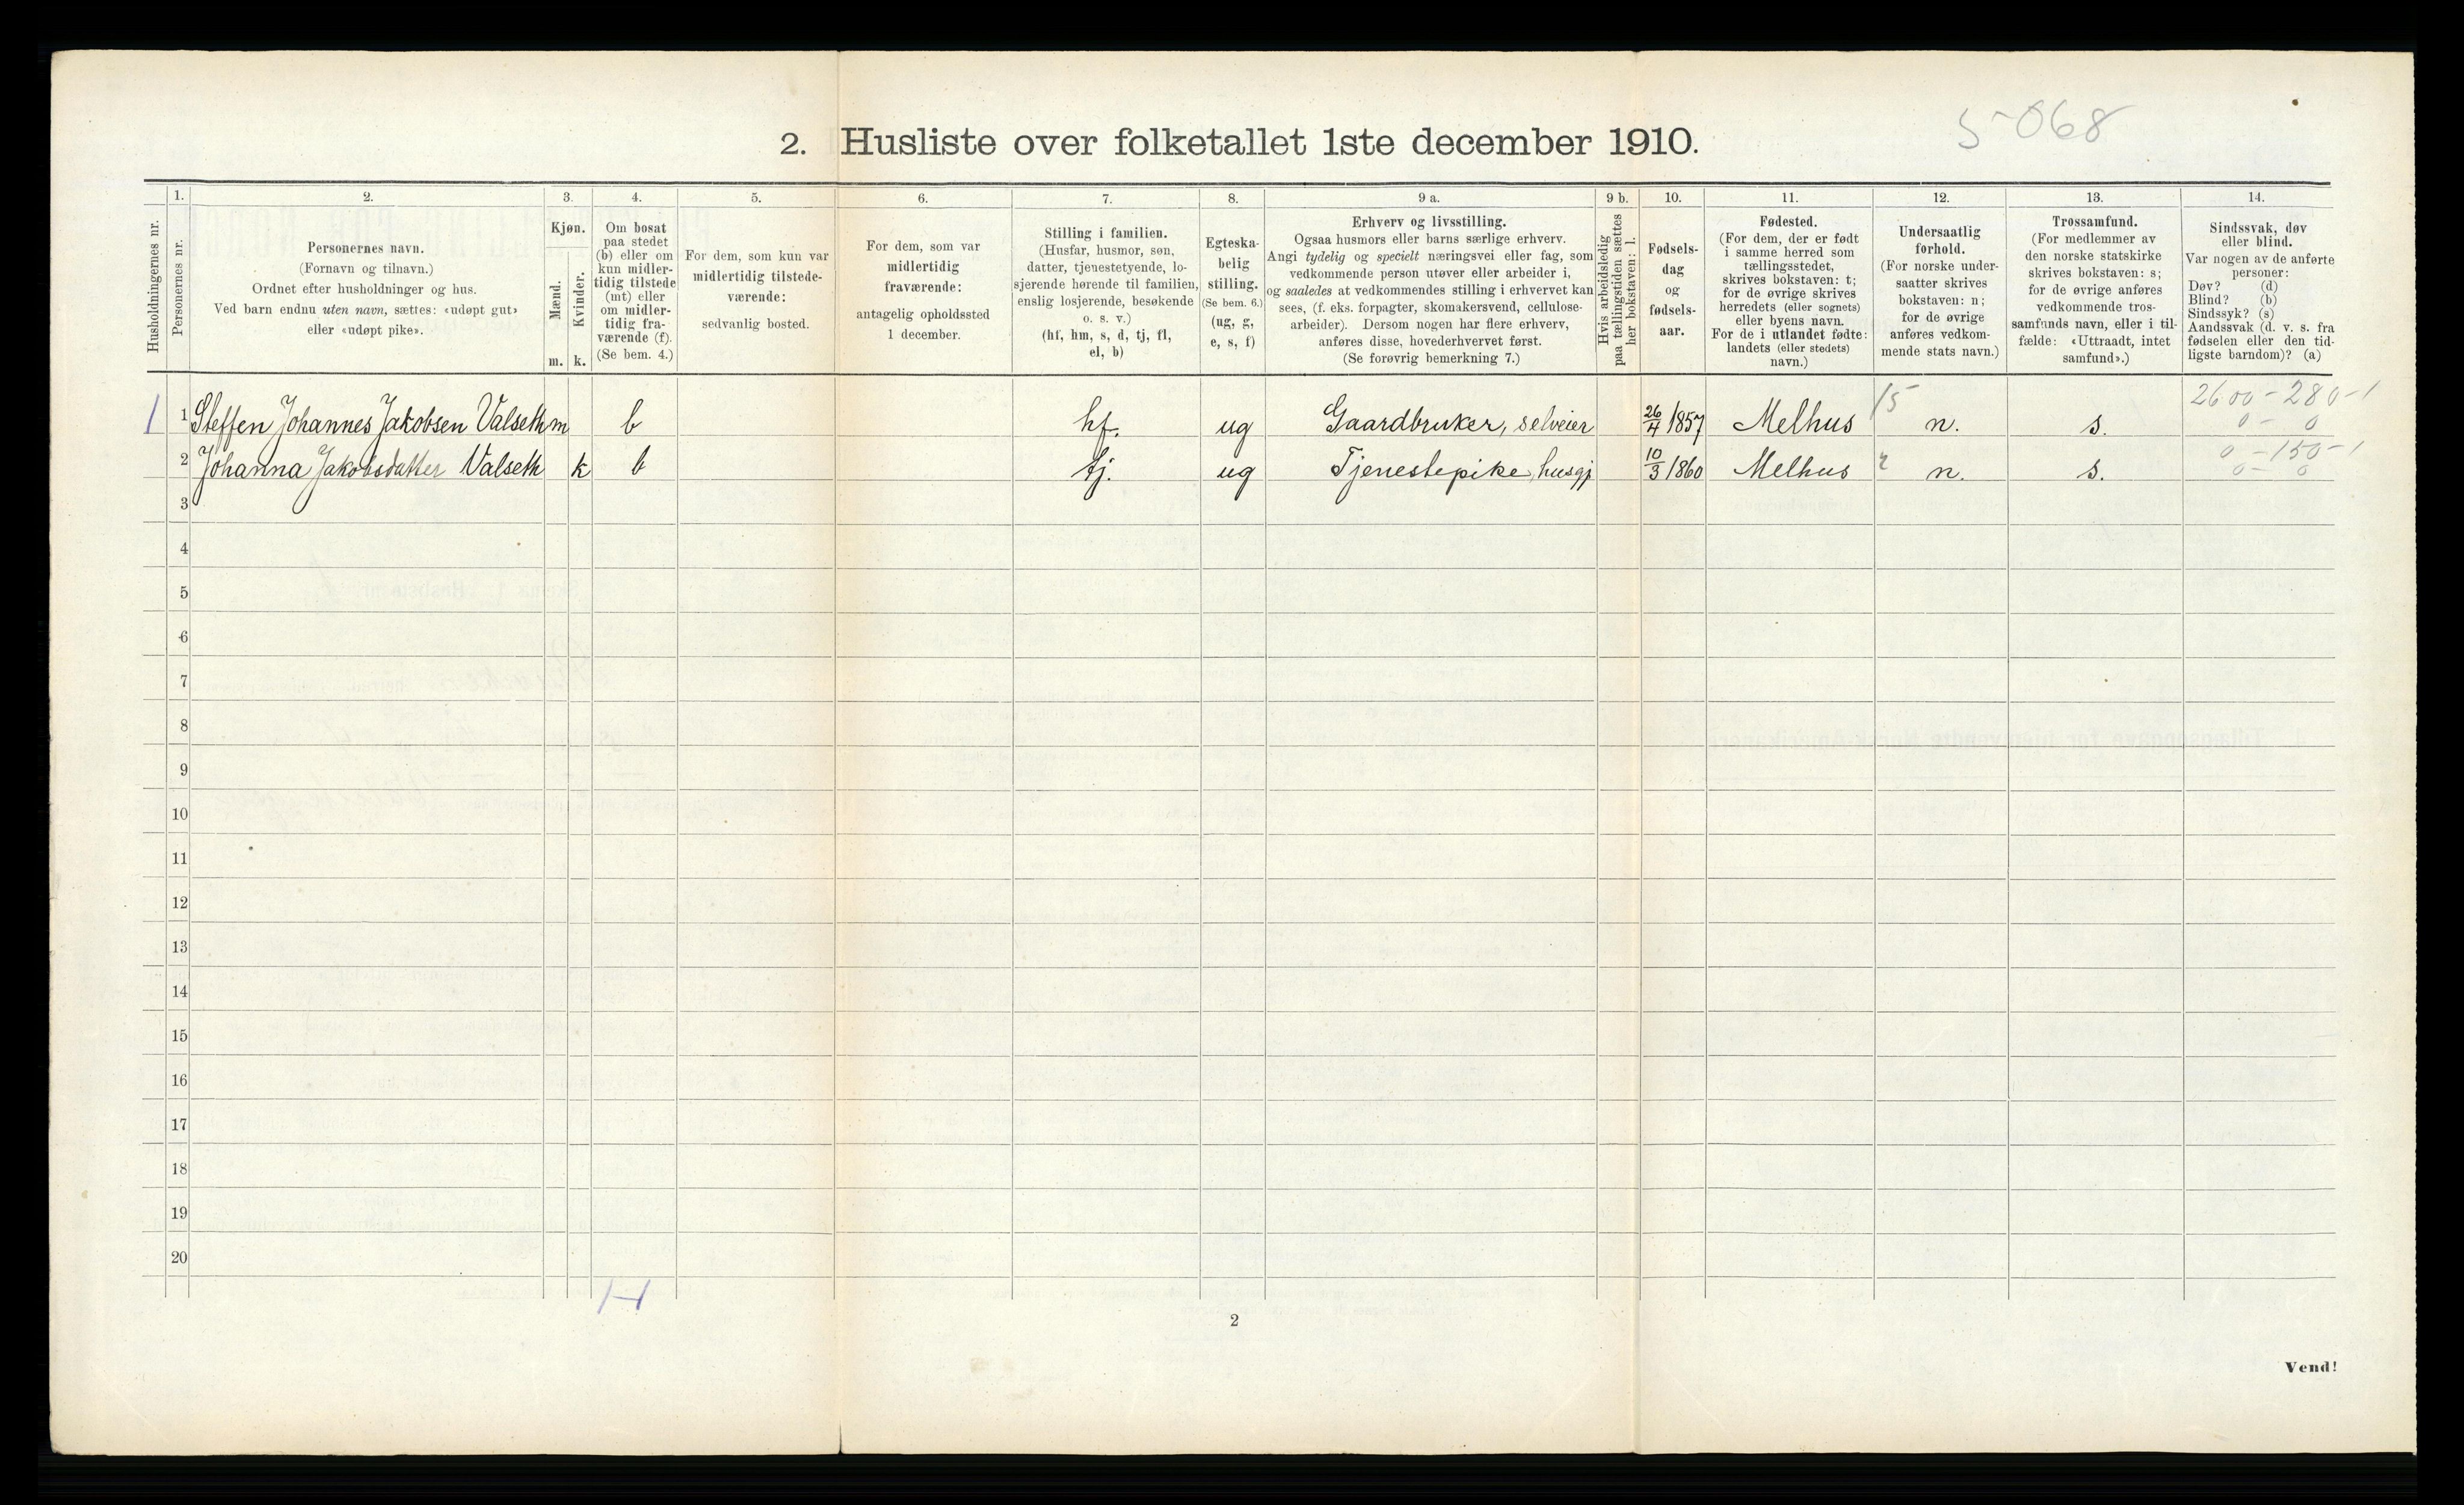 5-068
2. Husliste over folketallet 1ste december 1910.
1. 2. 3. 4. 5. 6. 7. 8. 9 a. 9 b. 10. 11. 12. 13. 14.
Husholdningernes nr.
Personernes nr.
Personernes navn.
(Fornavn og tilnavn.)
Ordnet efter husholdninger og hus.
Ved barn endnu uten navn, sættes: «udøpt gut»
eller «udøpt pike».
Kjøn.
Mænd.
Kvinder.
m. k.
Om bosat
paa stedet
(b) eller om
kun midler-
tidig tilstede
(mt) eller
om midler-
tidig fra-
værende (f).
(Se bem. 4.)
For dem, som kun var
midlertidig tilstede-
værende:
sedvanlig bosted.
For dem, som var
midlertidig
fraværende:
antagelig opholdssted
1 december.
Stilling i familien.
(Husfar, husmor, søn,
datter, tjenestetyende, lo-
sjerende hørende til familien,
enslig losjerende, besøkende
o. s. v.)
(hf, hm, s, d, tj, fl,
el, b)
Egteska-
belig
stilling.
(Se bem. 6.)
(ug, g,
e, s, f)
Erhverv og livsstilling.
Ogsaa husmors eller barns særlige erhverv.
Angi tydelig og specielt næringsvei eller fag, som
vedkommende person utøver eller arbeider i,
og saaledes at vedkommendes stilling i erhvervet kan
sees, (f. eks. forpagter, skomakersvend, cellulose-
arbeider). Dersom nogen har flere erhverv,
anføres disse, hovederhvervet først.
(Se forøvrig bemerkning 7.)
Hvis arbeidsledig
paa tællingstiden sættes
her bokstaven: l.
Fødsels-
dag
og
fødsels-
aar.
Fødested.
(For dem, der er født
i samme herred som
tællingsstedet,
skrives bokstaven: t;
for de øvrige skrives
herredets (eller sognets)
eller byens navn.
For de i utlandet fødte:
landets (eller stedets)
navn.)
Undersaatlig
forhold.
(For norske under-
saatter skrives
bokstaven: n;
for de øvrige
anføres vedkom-
mende stats navn.)
Trossamfund.
(For medlemmer av
den norske statskirke
skrives bokstaven: s;
for de øvrige anføres
vedkommende tros-
samfunds navn, eller i til-
fælde: «Uttraadt, intet
samfund».)
Sindssvak, døv
eller blind.
Var nogen av de anførte
personer:
Døv? (d)
Blind? (b)
Sindssyk? (s)
Aandssvak (d. v. s. fra
fødselen eller den tid-
ligste barndom)? (a)
15 2600-280-1
1 1 Steffen Johannes Jakobsen Valseth m b hf. ug Gaardbruker, selveier 26/4 1857 Melhus n. s. 0-0
0-150-1
2 Johanna Jakobsdatter Valseth k b tj. ug Tjenestepike, husgj 10/3 1860 Melhus n. s. 0-0
3
4
5
6
7
8
9
10
11
12
13
14
15
16
17
18
19
20
1-1
2
Vend!